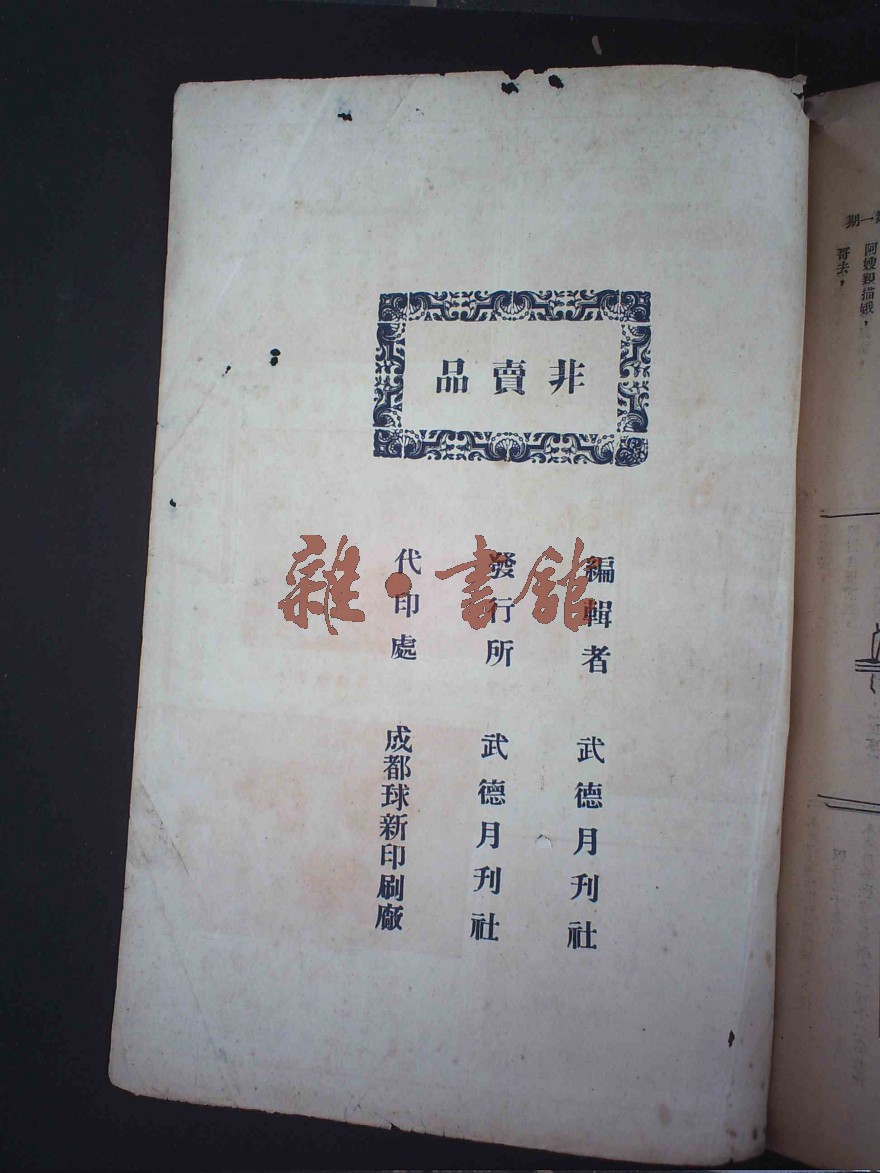 非賣品
編輯者 武德月刊社
發行所 武德月刊社
代印處 成都球新印刷廠
雜·書館
第一期
阿嫂艱描娥，
哥去，